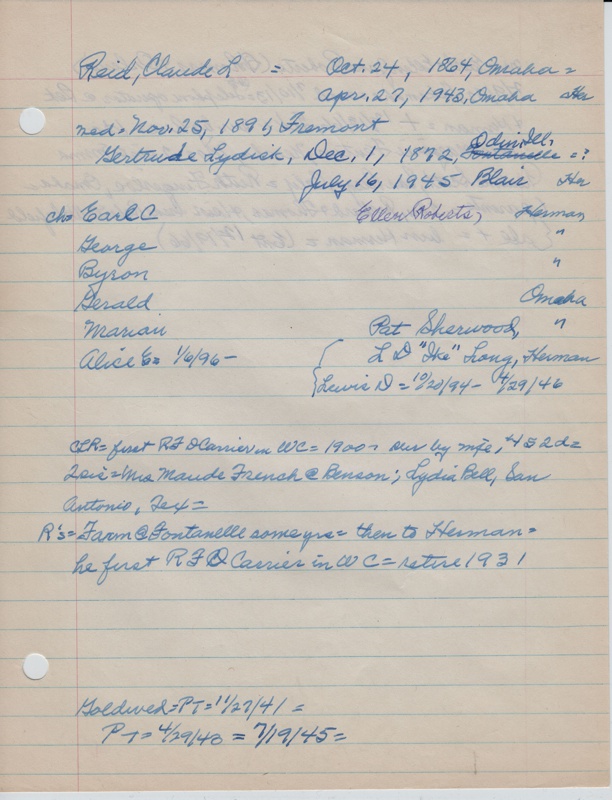 Reid, Claude L = Oct. 24, 1864, Omaha =
Apr. 27, 1943, Omaha Her
med = Nov. 25, 1891, Fremont
Odin, Ill.
Gertrude Lydick, Dec. 1, 1872, Fontanelle = ?
July 16, 1945 Blair Her
ch = Earl C Ellen Roberts, Herman
George "
Byron "
Gerald Omaha
Marian Pat Sherwood, "
Alice E = 1/6/96 - L D "Ike" Long, Herman
Lewis D = 10/20/94 - 4/29/46
CLR = first RFD Carrier in WC = 1900 Sur by wife, 4 S 2 d =
2 sis = Mrs Maude French @ Benson; Lydia Bell, San
Antonio, Tex =
R's = Farm @ Fontanelle some yrs = then to Herman =
he first RFD Carrier in WC = retire 1931
Goldwed = PT = 11/27/41 =
PT = 4/29/43 = 7/19/45 =